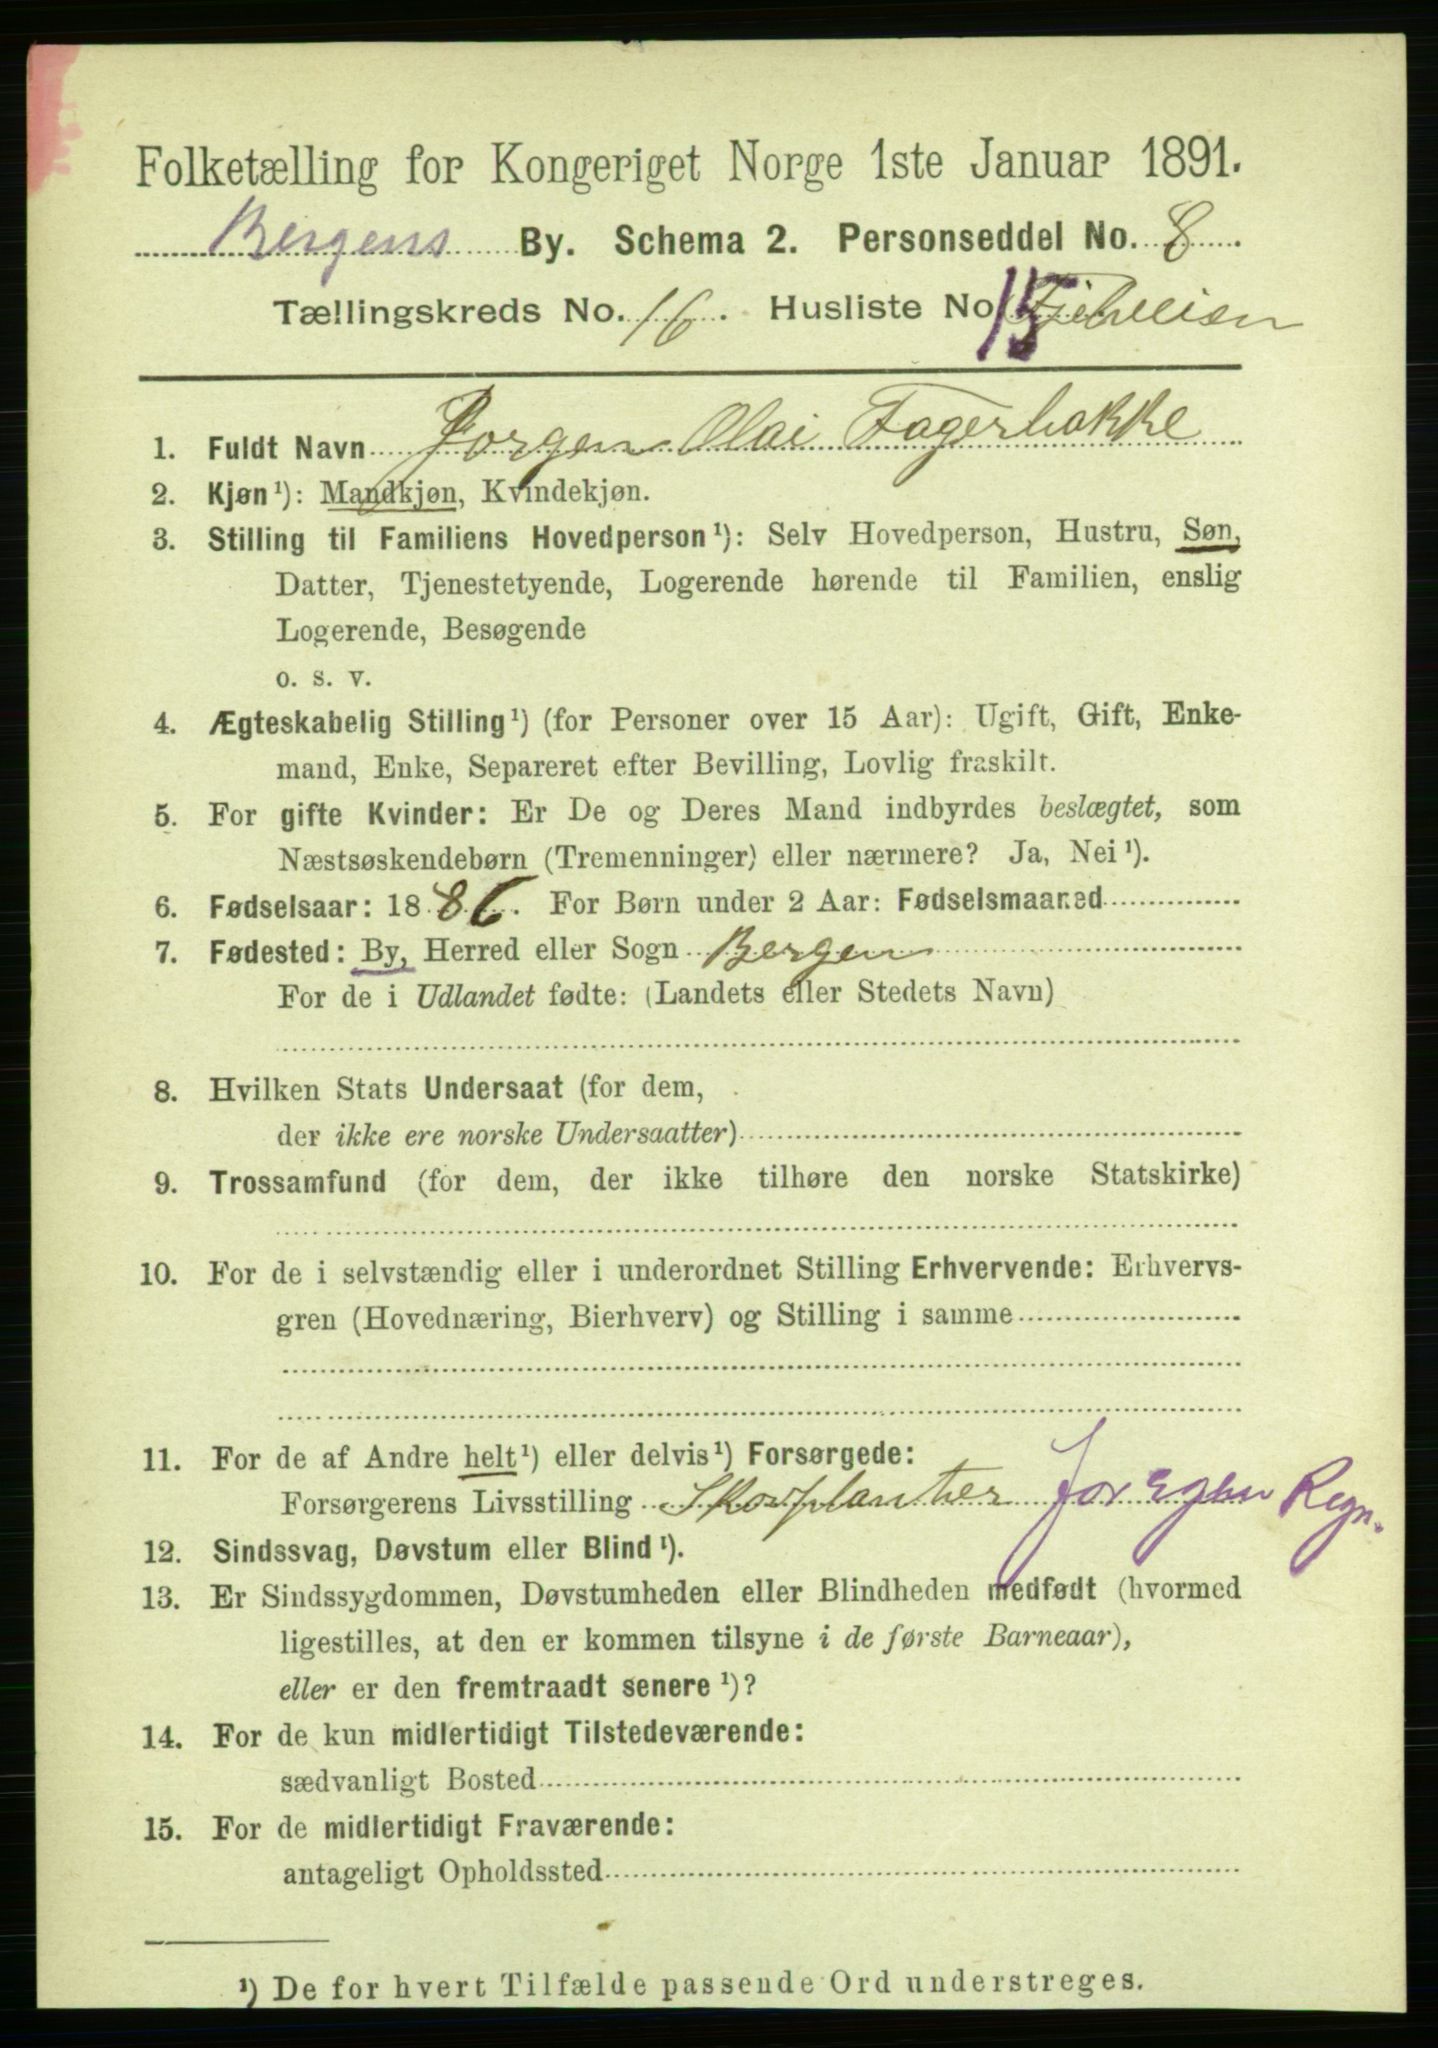 Folketælling for Kongeriget Norge 1ste Januar 1891.
Bergens By. Schema 2. Personseddel No. 8.
Tællingskreds No. 16. Husliste No 15
1. Fuldt Navn Jorgen Olai Fagerbakke
2. Kjøn¹): Mandkjøn, Kvindekjøn.
3. Stilling til Familiens Hovedperson¹): Selv Hovedperson, Hustru, Søn,
Datter, Tjenestetyende, Logerende hørende til Familien, enslig
Logerende, Besøgende
o. s. v.
4. Ægteskabelig Stilling¹) (for Personer over 15 Aar): Ugift, Gift, Enke-
mand, Enke, Separeret efter Bevilling, Lovlig fraskilt.
5. For gifte Kvinder: Er De og Deres Mand indbyrdes beslægtet, som
Næstsøskendebørn (Tremenninger) eller nærmere? Ja, Nei¹).
6. Fødselsaar: 1886. For Børn under 2 Aar: Fødselsmaaned
7. Fødested: By, Herred eller Sogn Bergen
For de i Udlandet fødte: (Landets eller Stedets Navn)
8. Hvilken Stats Undersaat (for dem,
der ikke ere norske Undersaatter)
9. Trossamfund (for dem, der ikke tilhøre den norske Statskirke)
10. For de i selvstændig eller i underordnet Stilling Erhvervende: Erhvervs-
gren (Hovednæring, Bierhverv) og Stilling i samme
11. For de af Andre helt¹) eller delvis¹) Forsørgede:
Forsørgerens Livsstilling Skovplanter
12. Sindssvag, Døvstum eller Blind¹).
13. Er Sindssygdommen, Døvstumheden eller Blindheden medfødt (hvormed
ligestilles, at den er kommen tilsyne i de første Barneaar),
eller er den fremtraadt senere¹)?
14. For de kun midlertidigt Tilstedeværende:
sædvanligt Bosted
15. For de midlertidigt Fraværende:
antageligt Opholdssted
¹) De for hvert Tilfælde passende Ord understreges.